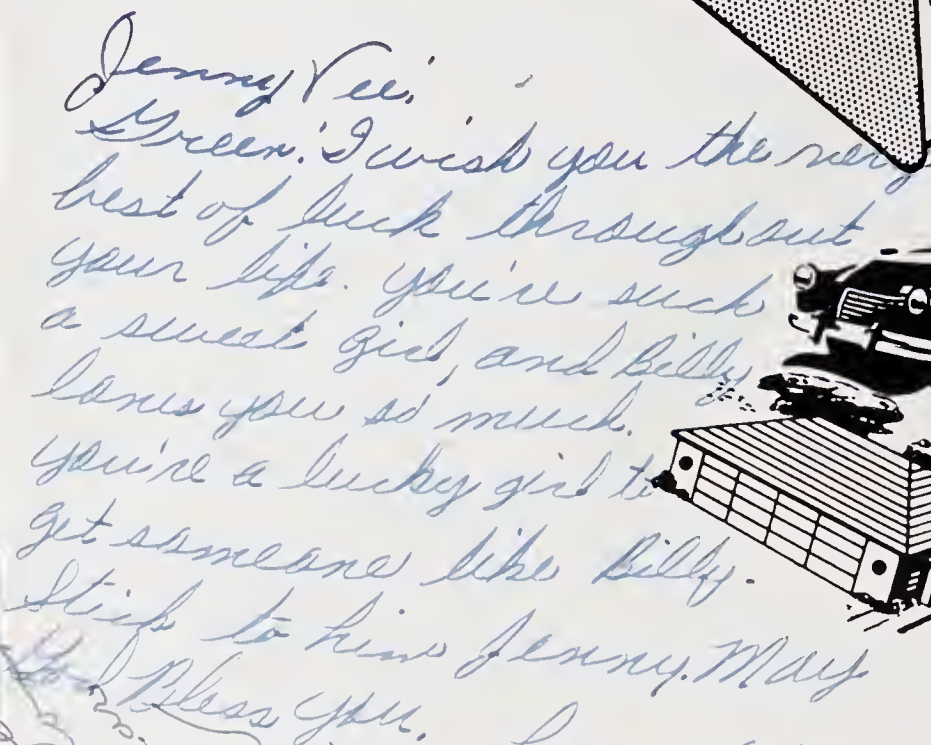 Jenny Vee,
Green! I wish you the very
best of luck throughout
your life. you're such
a sweet girl, and Billy
loves you so much.
you're a lucky girl to
get someone like Billy.
Stick to him Jenny. May
God Bless you.